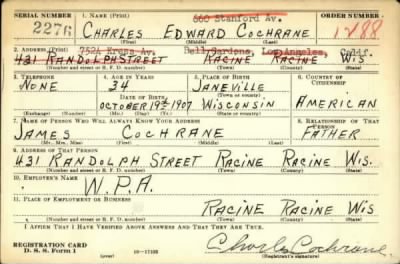 SERIAL NUMBER 1. NAME (Print) 660 Stanford Av. ORDER NUMBER
2276 CHARLES EDWARD COCHRANE 1288
(First) (Middle) (Last)
2. ADDRESS (Print) Bell Gardens, Los Angeles, Calif.
431 RANDOLPH STREET RACINE RACINE WIS
(Number and street or R. F. D. number) (Town) (County) (State)
3. TELEPHONE 4. AGE IN YEARS 5. PLACE OF BIRTH 6. COUNTRY OF CITIZENSHIP
NONE 34 JANEVILLE
DATE OF BIRTH (Town or county)
OCTOBER 19TH 1907 WISCONSIN AMERICAN
(Exchange) (Number) (Mo.) (Day) (Yr.) (State or country)
7. NAME OF PERSON WHO WILL ALWAYS KNOW YOUR ADDRESS 8. RELATIONSHIP OF THAT PERSON
JAMES COCHRANE FATHER
(Mr., Mrs., Miss) (First) (Middle) (Last)
9. ADDRESS OF THAT PERSON
431 RANDOLPH STREET RACINE RACINE WIS.
(Number and street or R. F. D. number) (Town) (County) (State)
10. EMPLOYER'S NAME
W.P.A.
11. PLACE OF EMPLOYMENT OR BUSINESS
RACINE RACINE WIS
(Number and street or R. F. D. number) (Town) (County) (State)
I AFFIRM THAT I HAVE VERIFIED ABOVE ANSWERS AND THAT THEY ARE TRUE.
REGISTRATION CARD
D. S. S. Form 1 (over) 16—17105 Charles Cochrane
(Registrant's signature)